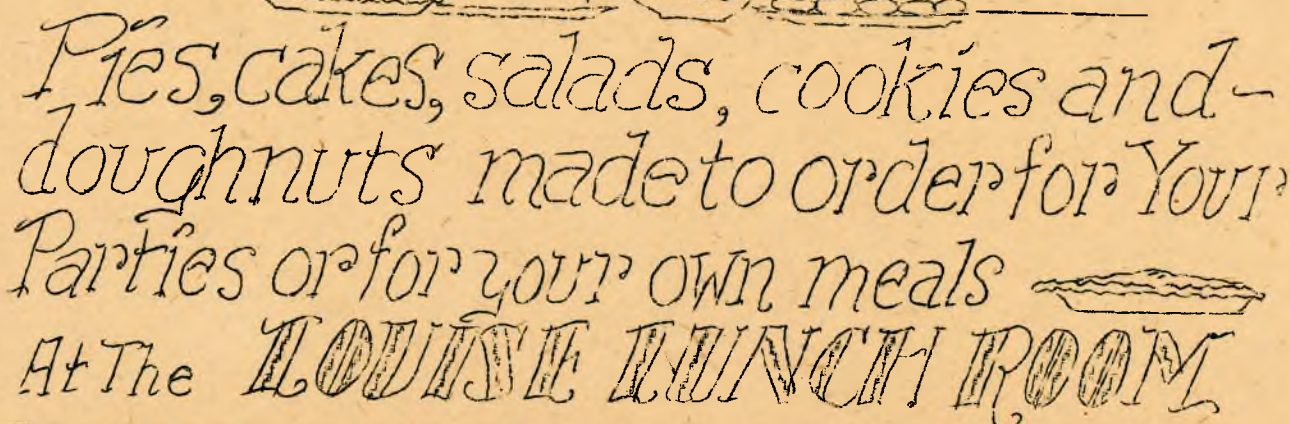 Pies, cakes, salads, cookies and-
doughnuts made to order for Your
Parties or for your own meals
At The LOUISE LUNCH ROOM